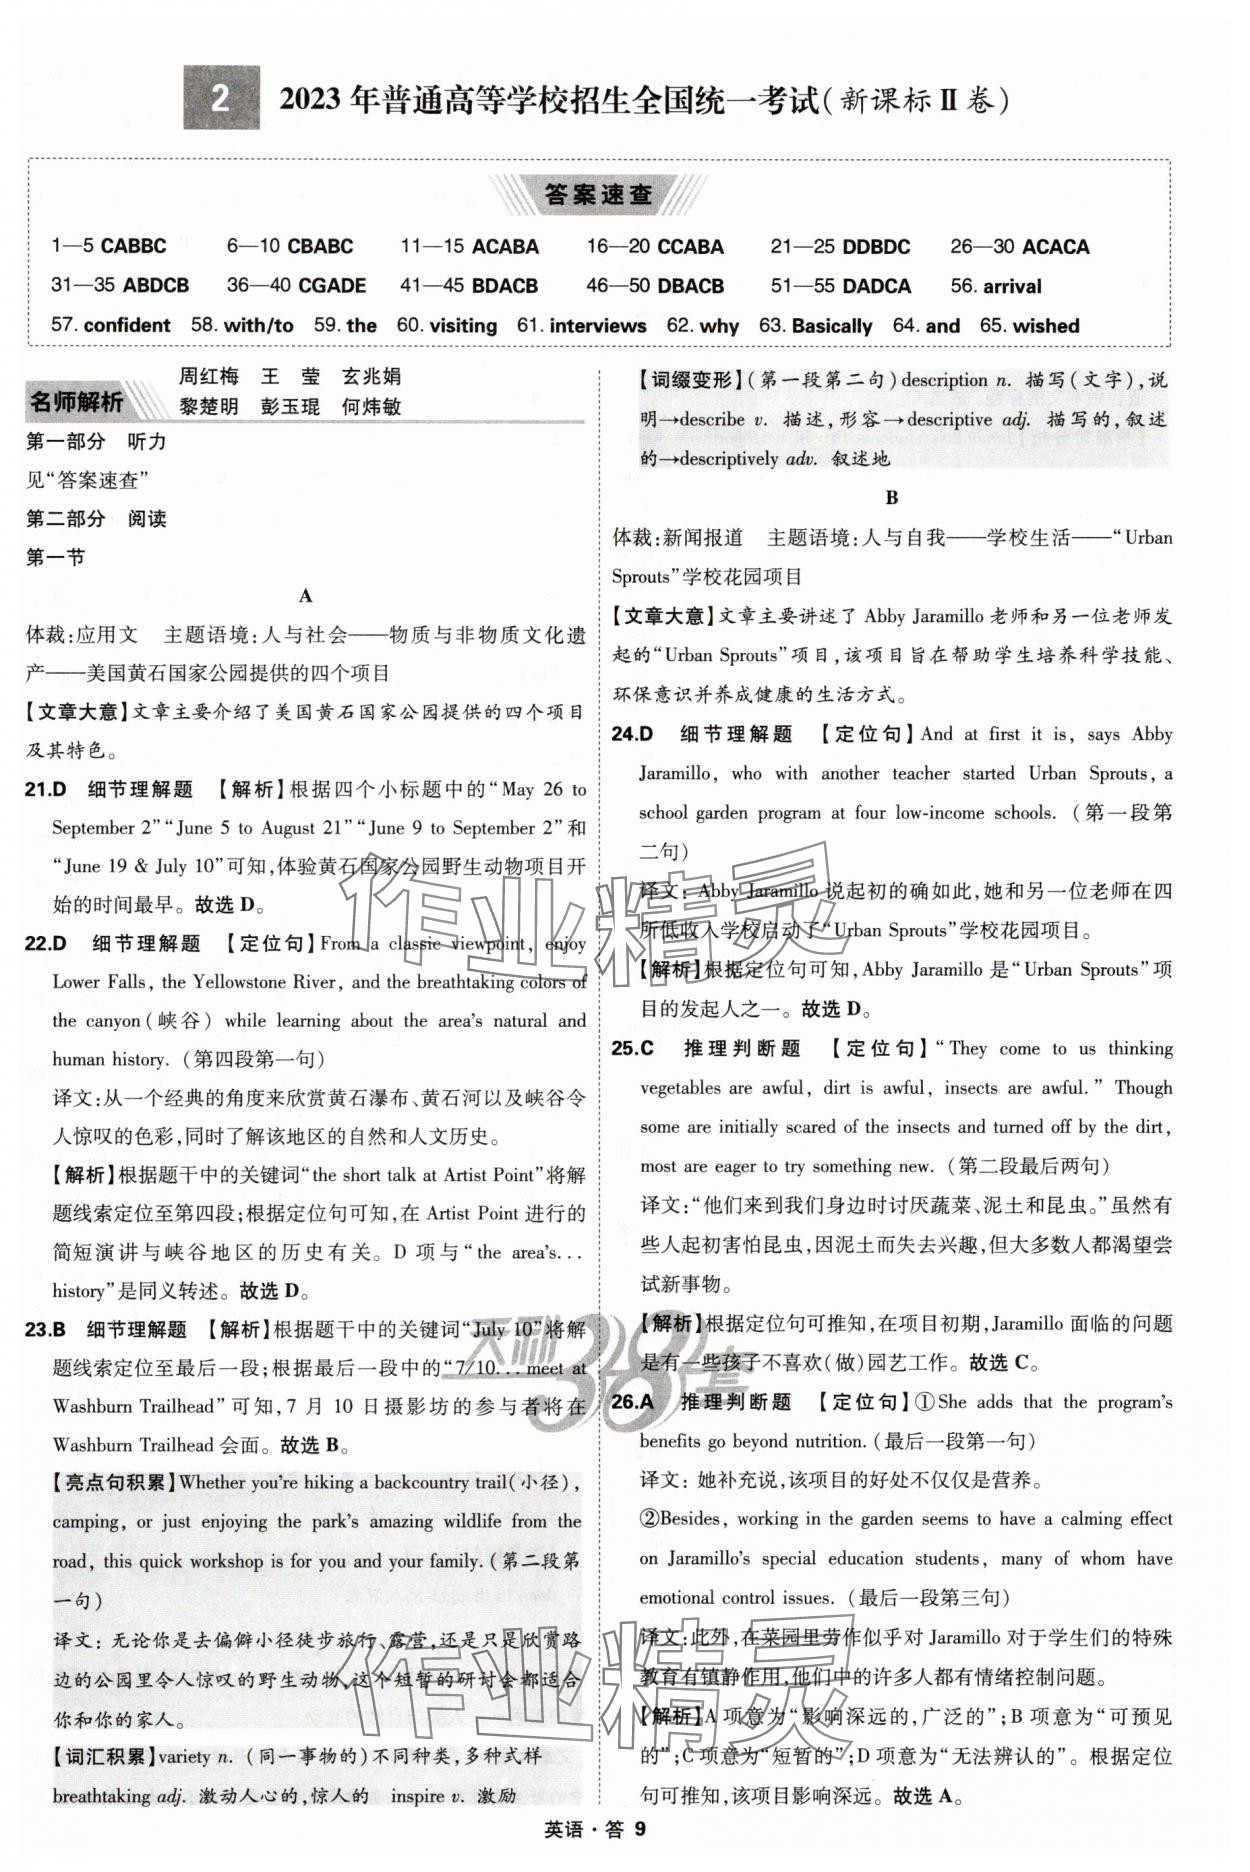 2 2023年普通高等学校招生全国统一考试(新课标Ⅱ卷)
答案速查
1—5 CABBC 6—10 CBABC 11—15 ACABA 16—20 CCABA 21—25 DDBDC 26—30 ACACA
31—35 ABDCB 36—40 CGADE 41—45 BDACB 46—50 DBACB 51—55 DADCA 56. arrival
57. confident 58. with/to 59. the 60. visiting 61. interviews 62. why 63. Basically 64. and 65. wished
名师解析
周红梅 王 莹 玄兆娟
黎楚明 彭玉琨 何炜敏
第一部分 听力
见“答案速查”
第二部分 阅读
第一节
A
体裁:应用文 主题语境:人与社会——物质与非物质文化遗
产——美国黄石国家公园提供的四个项目
【文章大意】文章主要介绍了美国黄石国家公园提供的四个项目
及其特色。
21.D 细节理解题 【解析】根据四个小标题中的“May 26 to
September 2”“June 5 to August 21”“June 9 to September 2”和
“June 19 & July 10”可知,体验黄石国家公园野生动物项目开
始的时间最早。故选 D。
22.D 细节理解题 【定位句】From a classic viewpoint, enjoy
Lower Falls, the Yellowstone River, and the breathtaking colors of
the canyon(峡谷) while learning about the area's natural and
human history. (第四段第一句)
译文:从一个经典的角度来欣赏黄石瀑布、黄石河以及峡谷令
人惊叹的色彩,同时了解该地区的自然和人文历史。
【解析】根据题干中的关键词“the short talk at Artist Point”将解
题线索定位至第四段;根据定位句可知,在 Artist Point 进行的
简短演讲与峡谷地区的历史有关。D 项与“the area's...
history”是同义转述。故选 D。
23.B 细节理解题 【解析】根据题干中的关键词“July 10”将解
题线索定位至最后一段;根据最后一段中的“7/10... meet at
Washburn Trailhead”可知,7 月 10 日摄影坊的参与者将在
Washburn Trailhead 会面。故选 B。
【亮点句积累】Whether you're hiking a backcountry trail(小径),
camping, or just enjoying the park's amazing wildlife from the
road, this quick workshop is for you and your family. (第二段第
一句)
译文: 无论你是去偏僻小径徒步旅行、露营,还是只是欣赏路
边的公园里令人惊叹的野生动物,这个短暂的研讨会都适合
你和你的家人。
【词汇积累】variety n. (同一事物的)不同种类,多种式样
breathtaking adj. 激动人心的,惊人的 inspire v. 激励
【词缀变形】(第一段第二句)description n. 描写(文字),说
明→describe v. 描述,形容→descriptive adj. 描写的,叙述
的→descriptively adv. 叙述地
B
体裁:新闻报道 主题语境:人与自我——学校生活——“Urban
Sprouts”学校花园项目
【文章大意】文章主要讲述了 Abby Jaramillo 老师和另一位老师发
起的“Urban Sprouts”项目,该项目旨在帮助学生培养科学技能、
环保意识并养成健康的生活方式。
24.D 细节理解题 【定位句】And at first it is, says Abby
Jaramillo, who with another teacher started Urban Sprouts, a
school garden program at four low-income schools. (第一段第
二句)
译文: Abby Jaramillo 说起初的确如此,她和另一位老师在四
所低收入学校启动了“Urban Sprouts”学校花园项目。
【解析】根据定位句可知, Abby Jaramillo 是“Urban Sprouts”项
目的发起人之一。故选 D。
25.C 推理判断题 【定位句】“They come to us thinking
vegetables are awful, dirt is awful, insects are awful.” Though
some are initially scared of the insects and turned off by the dirt,
most are eager to try something new. (第二段最后两句)
译文:“他们来到我们身边时讨厌蔬菜、泥土和昆虫。”虽然有
些人起初害怕昆虫,因泥土而失去兴趣,但大多数人都渴望尝
试新事物。
【解析】根据定位句可推知,在项目初期,Jaramillo 面临的问题
是有一些孩子不喜欢(做)园艺工作。故选 C。
26.A 推理判断题 【定位句】①She adds that the program's
benefits go beyond nutrition. (最后一段第一句)
译文: 她补充说,该项目的好处不仅仅是营养。
②Besides, working in the garden seems to have a calming effect
on Jaramillo's special education students, many of whom have
emotional control issues. (最后一段第三句)
译文:此外,在菜园里劳作似乎对 Jaramillo 对于学生们的特殊
教育有镇静作用,他们中的许多人都有情绪控制问题。
【解析】A 项意为“影响深远的,广泛的”;B 项意为“可预见
的”;C 项意为“短暂的”;D 项意为“无法辨认的”。根据定位
句可推知,该项目影响深远。故选 A。
作业精灵
天利38套
作业精灵
英语·答 9